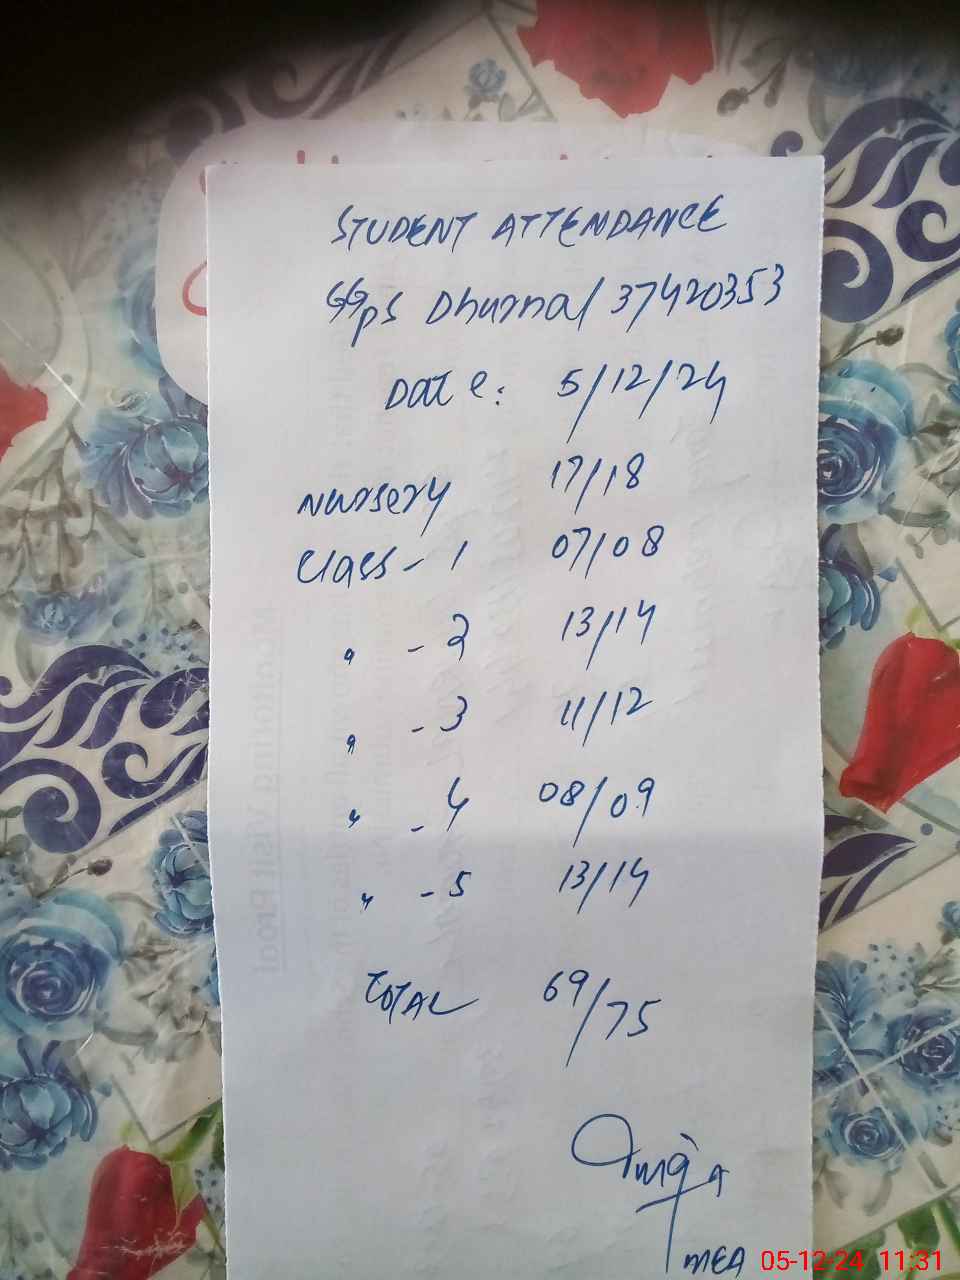 STUDENT ATTENDANCE
GGPS Dhurnal 37420353
Date: 5/12/24
Nursery 17/18
Class - 1 07/08
" - 2 13/14
" - 3 11/12
" - 4 08/09
" - 5 13/14
TOTAL 69/75
MEA
05-12-24 11:31
Monitoring Visit Proof